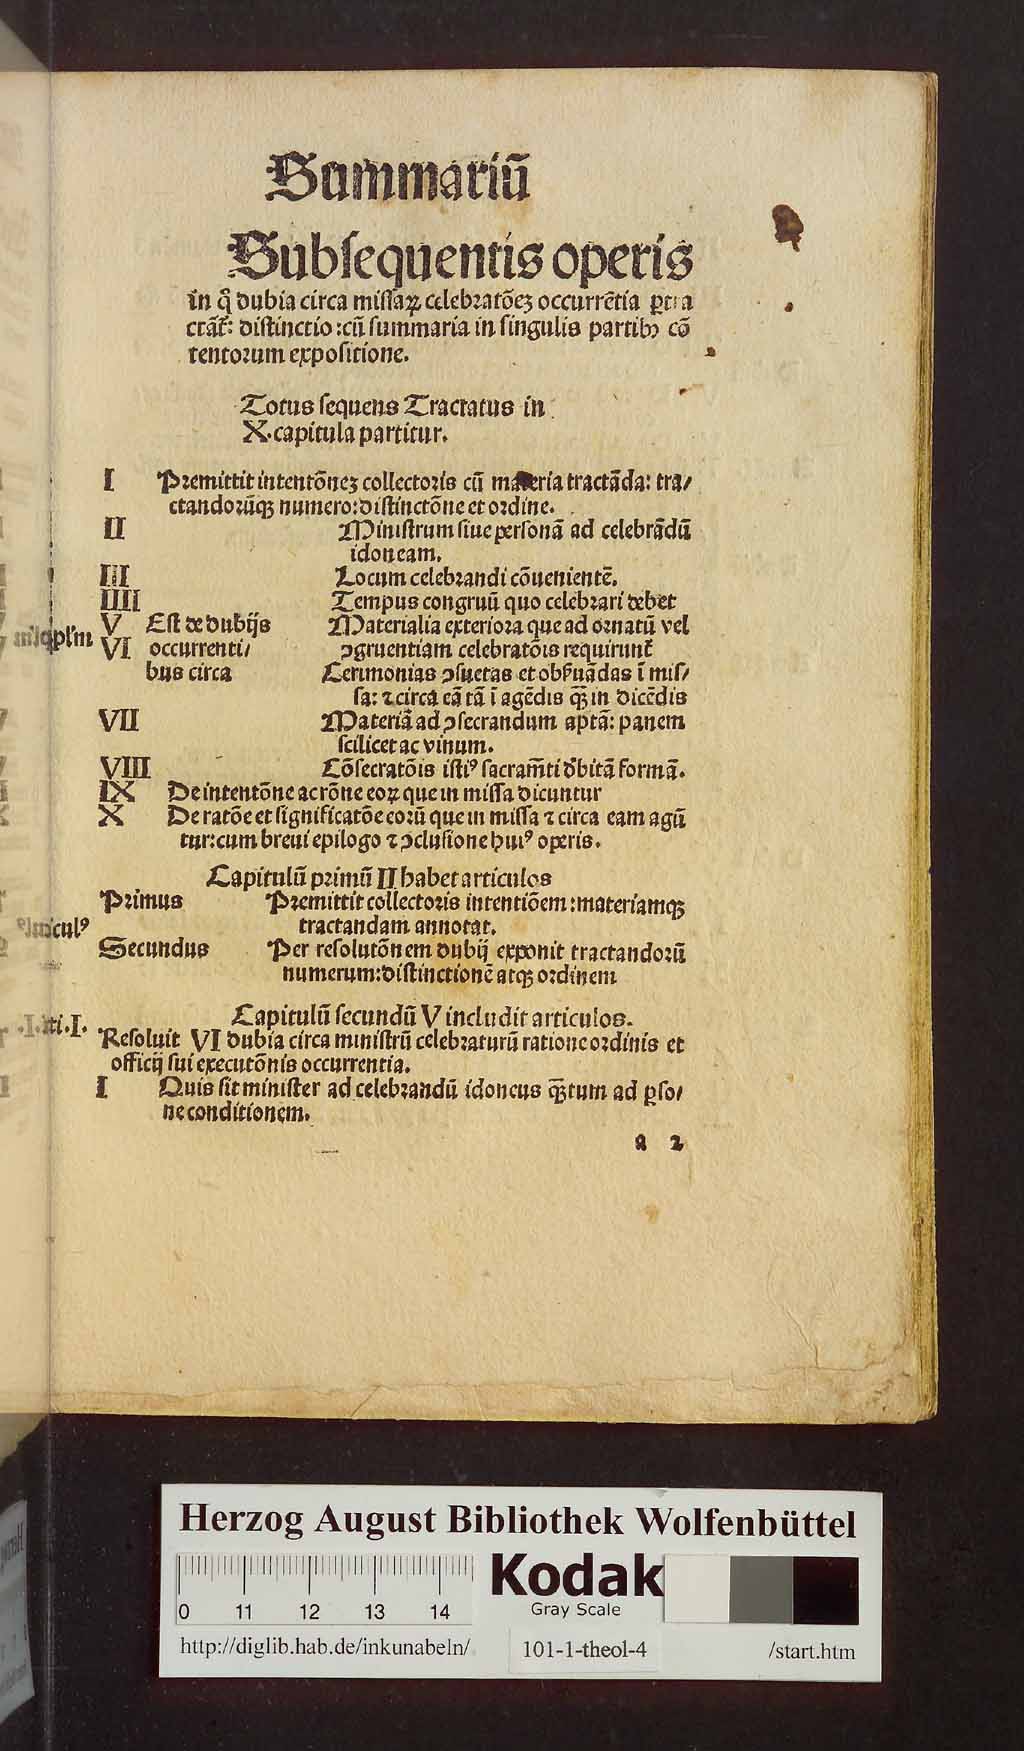 Summariū
Subsequentis operis
in q̄ dubia circa missaꝝ celebratōeꝫ occurrētia ꝑtra
ctāt̄: distinctio :cū summaria in singulis partibꝫ cō
tentorum expositione.
Totus sequens Tractatus in
X.capitula partitur.
I Premittit intentōneꝫ collectoris cū materia tractāda: tra/
ctandorūqꝫ numero:distinctōne et ordine.
II Ministrum siue personā ad celebrādū
idoneam.
III Locum celebrandi cōuenientē.
IIII Tempus congruū quo celebrari debet
V Est de dubijs Materialia exteriora que ad ornatū vel
VI occurrenti/ ꝯgruentiam celebratōis requirunt̄
bus circa Cerimonias ꝯsuetas et obẜuādas ī mis/
sa: ⁊ circa eā tā ī agēdis qꝫ̄ in dicēdis
VII Materiā ad ꝯsecrandum aptā: panem
scilicet ac vinum.
VIII Cōsecratōis istiꝰ sacram̄ti d̕bitā formā.
IX De intentōne ac rōne eoꝝ que in missa dicuntur
X De ratōe et significatōe eorū que in missa ⁊ circa eam agū
tur:cum breui epilogo ⁊ ꝯclusione huiꝰ operis.
Capitulū primū II habet articulos
Primus Premittit collectoris intentiōem :materiamqꝫ
tractandam annotat.
Secundus Per resolutōnem dubij exponit tractandorū
numerum:distinctionē atqꝫ ordinem
Capitulū secundū V includit articulos.
Resoluit VI dubia circa ministrū celebraturū ratione ordinis et
officij sui executōnis occurrentia.
I Quis sit minister ad celebrandū idoneus qꝫ̄tum ad ꝑso/
ne conditionem.
a 2
Herzog August Bibliothek Wolfenbüttel
0 11 12 13 14
Kodak
Gray Scale
http://diglib.hab.de/inkunabeln/ 101-1-theol-4 /start.htm